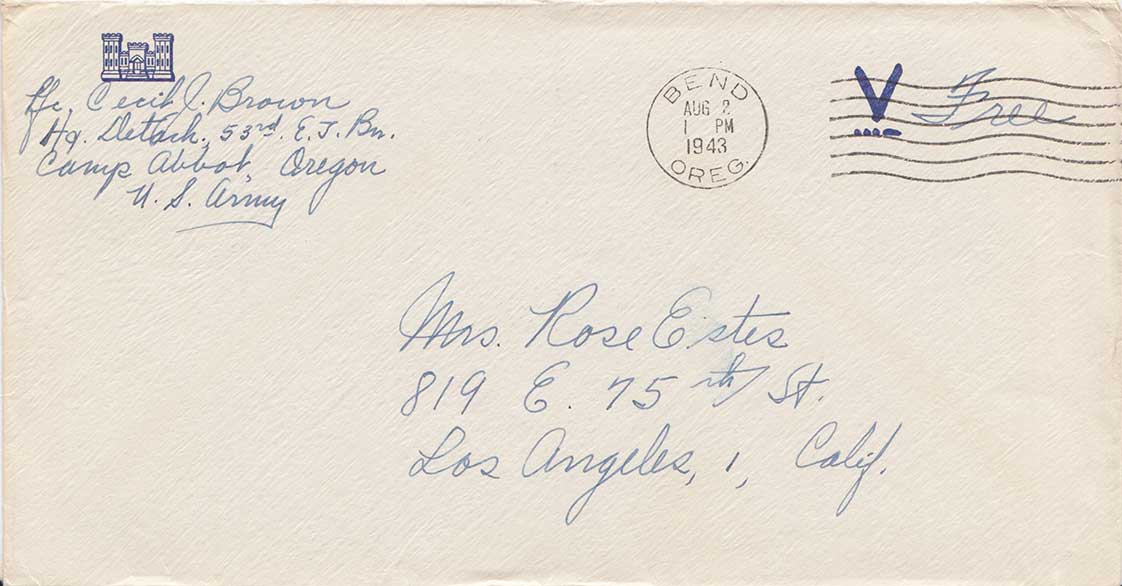 Pfc. Cecil J. Brown
Hq. Detach. 53rd. E. T. Bn.
Camp Abbot, Oregon
U. S. Army
BEND
AUG 2
1 PM
1943
OREG.
V Free
Mrs. Rose Estes
819 E. 75th St.
Los Angeles, 1, Calif.